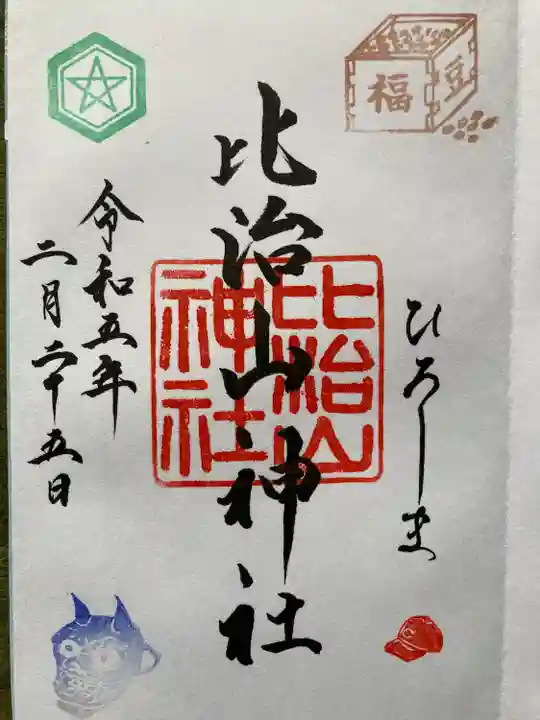 福
豆
ひろしま
比治山神社
比治山
神社
令和五年
二月二十五日